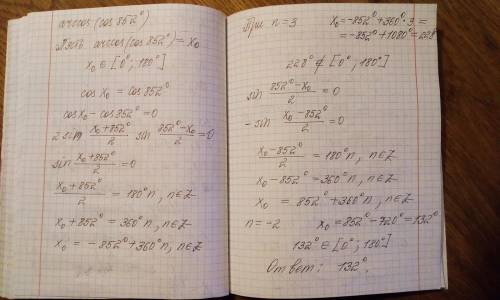 arccos(cos 852°)
Пусть arccos(cos 852°) = x₀
x₀ ∈ [0°; 180°]
cos x₀ = cos 852°
cos x₀ - cos 852° = 0
2 sin (x₀+852°)/2 sin (852°-x₀)/2 = 0
sin (x₀+852°)/2 = 0
(x₀+852°)/2 = 180°n, n∈Z
x₀ + 852° = 360°n, n∈Z
x₀ = -852° + 360°n, n∈Z
При n=3 x₀ = -852° + 360°·3 =
= -852° + 1080° = 228°
228° ∉ [0°; 180°]
sin (852°-x₀)/2 = 0
- sin (x₀-852°)/2 = 0
(x₀-852°)/2 = 180°n, n∈Z
x₀ - 852° = 360°n, n∈Z
x₀ = 852° + 360°n, n∈Z
n = -2 x₀ = 852° - 720° = 132°
132° ∈ [0°; 180°]
Ответ: 132°.